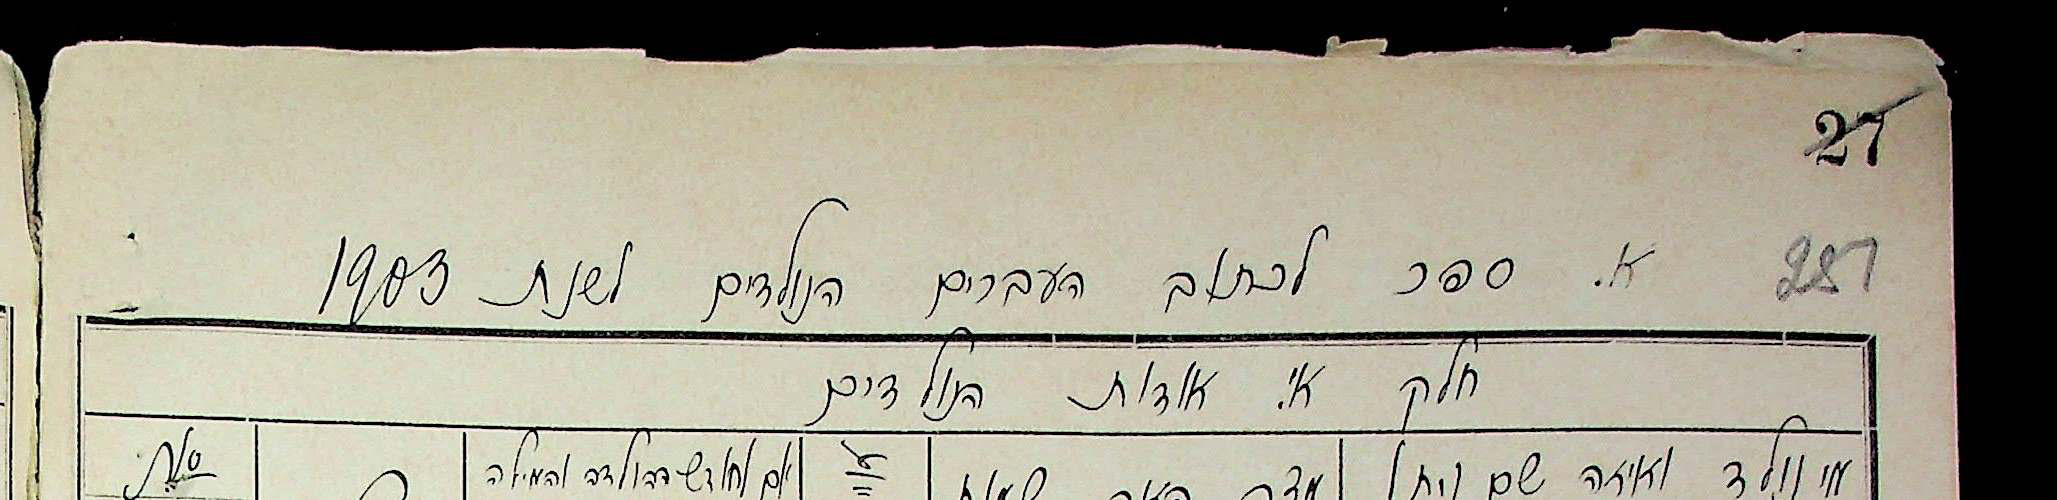 27
287 א. ספר לכתוב העברים הנולדים לשנת 1903
חלק א'. אודות הנולדים
מי נולד ואיזה שם ניתן יום וחודש ההולדה והמילה